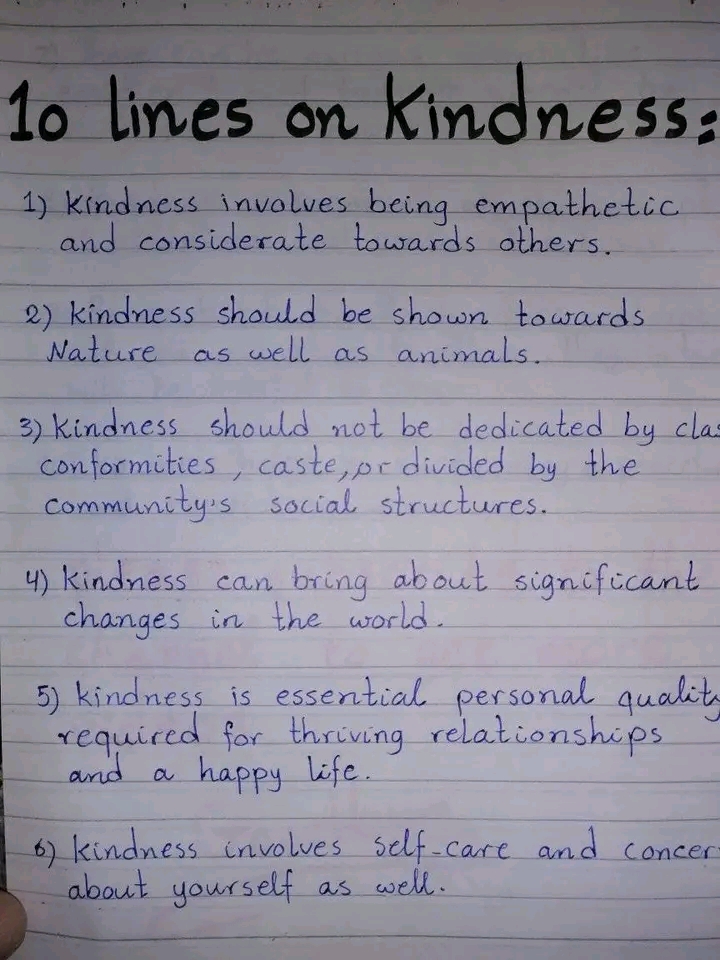 10 lines on Kindness:
1) Kindness involves being empathetic
and considerate towards others.
2) Kindness should be shown towards
Nature as well as animals.
3) Kindness should not be dedicated by clas
conformities, caste, or divided by the
community's social structures.
4) Kindness can bring about significant
changes in the world.
5) Kindness is essential personal quality
required for thriving relationships
and a happy life.
6) Kindness involves self-care and concer
about yourself as well.